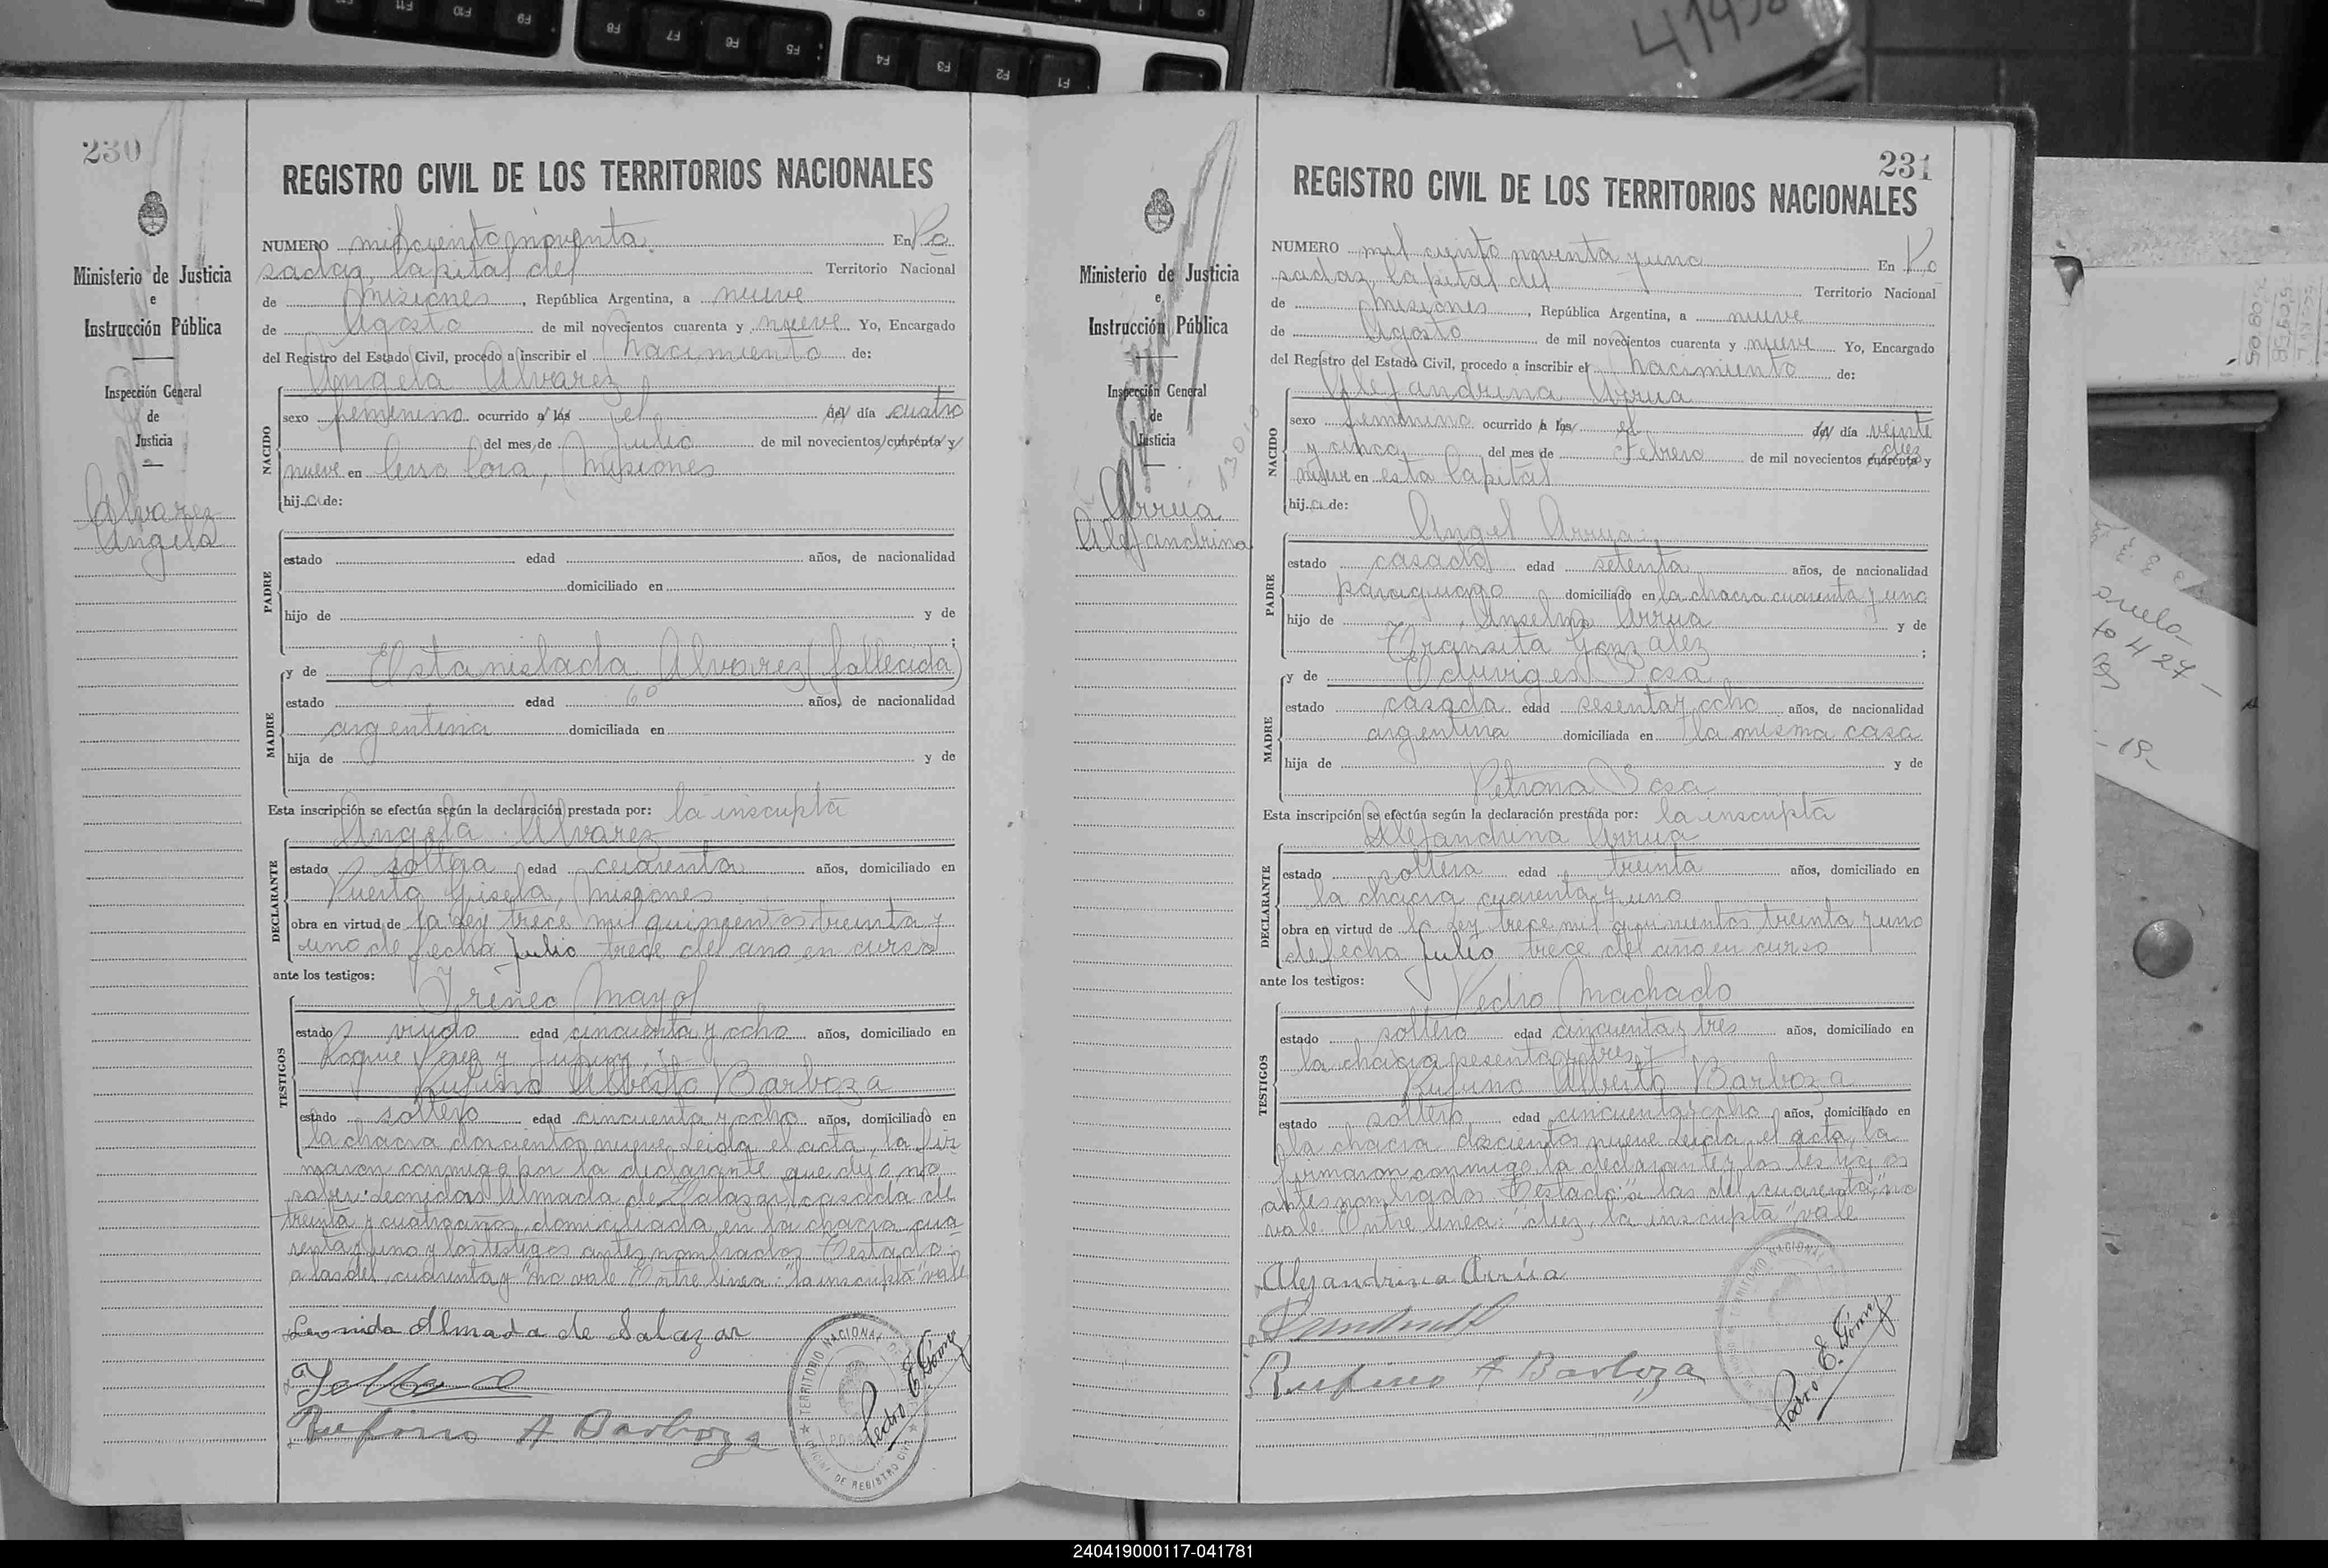 41438
230
Ministerio de Justicia
e
Instrucción Pública
Inspección General
de
Justicia
Alvarez
Angela
REGISTRO CIVIL DE LOS TERRITORIOS NACIONALES
NUMERO mil ciento noventa En Po
sadas, Capital del Territorio Nacional
de Misiones, República Argentina, a nueve
de Agosto de mil novecientos cuarenta y nueve Yo, Encargado
del Registro del Estado Civil, procedo a inscribir el nacimiento de:
Angela Alvarez
NACIDO
sexo femenino ocurrido a las el del día cuatro
del mes de Julio de mil novecientos cuarenta y
nueve en Cerro Cora, Misiones
hija de:
PADRE
estado edad años, de nacionalidad
domiciliado en
hijo de y de
;
MADRE
y de Estanislada Alvarez (fallecida)
estado edad 60 años, de nacionalidad
argentina domiciliada en
hija de y de
Esta inscripción se efectúa según la declaración prestada por: la inscripta
Angela Alvarez
DECLARANTE
estado soltera edad cuarenta años, domiciliado en
Puerto Gisela, Misiones
obra en virtud de la Ley trece mil quinientos treinta y
uno de fecha Julio trece del año en curso
ante los testigos:
TESTIGOS
Ireneo Mayol
estado viudo edad cincuenta y ocho años, domiciliado en
Roque Perez y Junin y
Rufino Alberto Barboza
estado soltero edad cincuenta y ocho años, domiciliado en
la chacra doscientos nueve Leida el acta, la fir
maron conmigo por la declarante que dijo no
saber: Leonidas Almada de Salazar, casada de
treinta y cuatro años, domiciliada en la chacra cua
renta y uno y los testigos antes nombrados Testado:
a las del, cuarenta y "no vale Entre linea: "la inscripta" vale
Leonida Almada de Salazar
Rufino A Barboza
TERRITORIO NACIONAL
OFICINA DE REGISTRO CIVIL
Pedro E. Gómez
231
Ministerio de Justicia
e
Instrucción Pública
Inspección General
de
Justicia
Arrua
Alejandrina
REGISTRO CIVIL DE LOS TERRITORIOS NACIONALES
NUMERO mil ciento noventa y uno En Po
sadas, Capital del Territorio Nacional
de Misiones, República Argentina, a nueve
de Agosto de mil novecientos cuarenta y nueve Yo, Encargado
del Registro del Estado Civil, procedo a inscribir el nacimiento de:
Alejandrina Arrua
NACIDO
sexo femenino ocurrido a las el del día veinte
y cinco del mes de Febrero de mil novecientos cuarenta diez y
nueve en esta Capital
hija de:
PADRE
Angel Arrua
estado casado edad setenta años, de nacionalidad
paraguayo domiciliado en la chacra cuarenta y uno
hijo de Anselmo Arrua y de
Transita Gonzalez ;
MADRE
y de Eduviges Sosa
estado casada edad sesenta y ocho años, de nacionalidad
argentina domiciliada en la misma casa
hija de y de
Petrona Sosa
Esta inscripción se efectúa según la declaración prestada por: la inscripta
Alejandrina Arrua
DECLARANTE
estado soltera edad treinta años, domiciliado en
la chacra cuarenta y uno
obra en virtud de la Ley trece mil quinientos treinta y uno
de fecha Julio trece del año en curso
ante los testigos:
TESTIGOS
Pedro Machado
estado soltero edad cincuenta y tres años, domiciliado en
la chacra sesenta y tres y
Rufino Alberto Barboza
estado soltero edad cincuenta y ocho años, domiciliado en
la chacra doscientos nueve Leida el acta, la
firmaron conmigo la declarante y los testigos
antes nombrados Testado: "a las del cuarenta," no
vale Entre linea: "diez, la inscripta" vale
Alejandrina Arrúa
Rufino A Barboza
Pedro E. Gómez
240419000117-041781